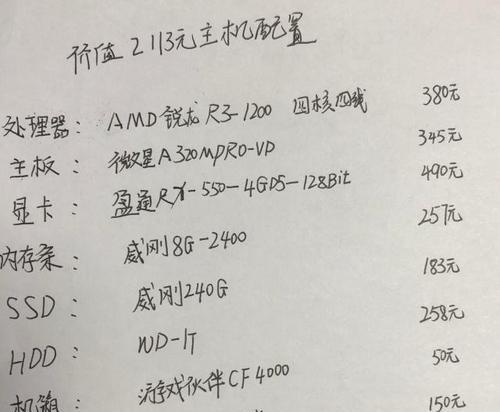 价值2113元主机配置
处理器：AMD锐龙R3-1200 四核四线 380元
主板：微星A320MPRO-VD 345元
显卡：盈通RX-550-4GD5-128Bit 490元
内存条：威刚8G-2400 257元
SSD：威刚240G 183元
HDD：WD-1T 258元
机箱：游戏伙伴CF4000 50元
150元